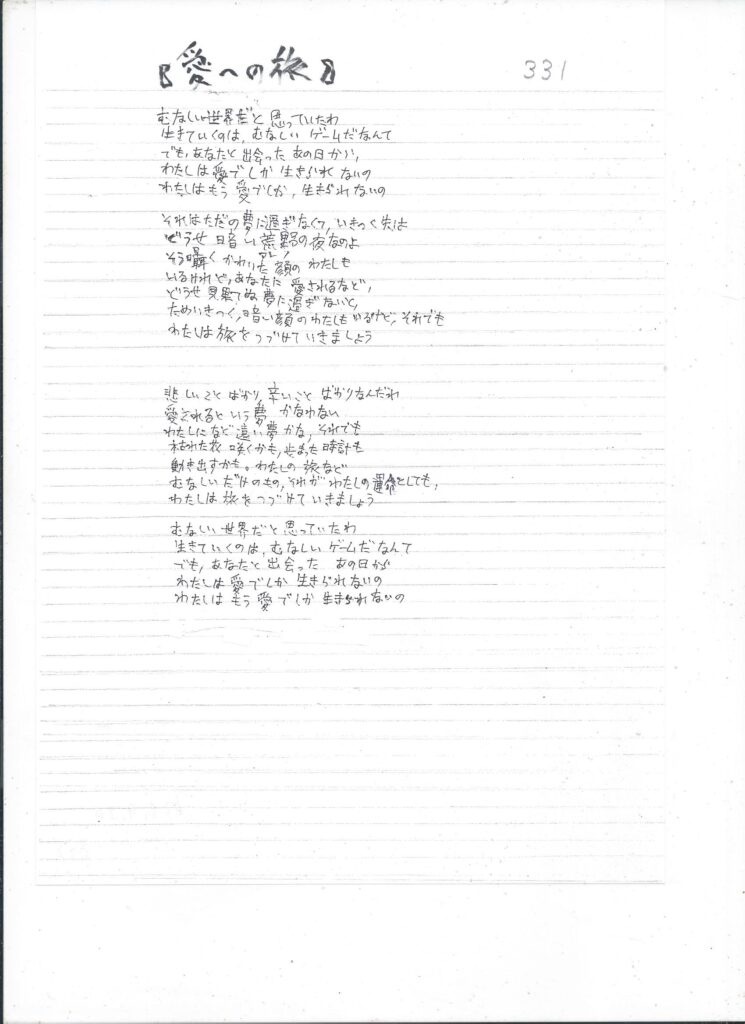 『愛への旅』
331
むなしい世界だと思っていたわ
生きていくのは、むなしいゲームだなんて
でも、あなたと出会ったあの日から、
わたしは愛でしか生きられないの
わたしはもう愛でしか、生きられないの
それはただの夢に過ぎなくて、いきつく先は
どうせ暗い荒野の夜なのよ
そう囁くかわいた顔のわたしも
いるけれど、あなたに愛されるなど、
どうせ見果てぬ夢に過ぎないと、
ためいきつく、暗い顔のわたしもいるけど、それでも
わたしは旅をつづけていきましょう
悲しいことばかり、辛いことばかりなんだわ
愛されるという夢かなわない
わたしになど遠い夢かな、それでも
枯れた花咲くかも、止まった時計も
動き出すかも。わたしの旅など
むなしいだけのもの、それがわたしの運命としても、
わたしは旅をつづけていきましょう
むなしい世界だと思っていたわ
生きていくのは、むなしいゲームだなんて
でも、あなたと出会ったあの日から
わたしは愛でしか生きられないの
わたしはもう愛でしか生きられないの